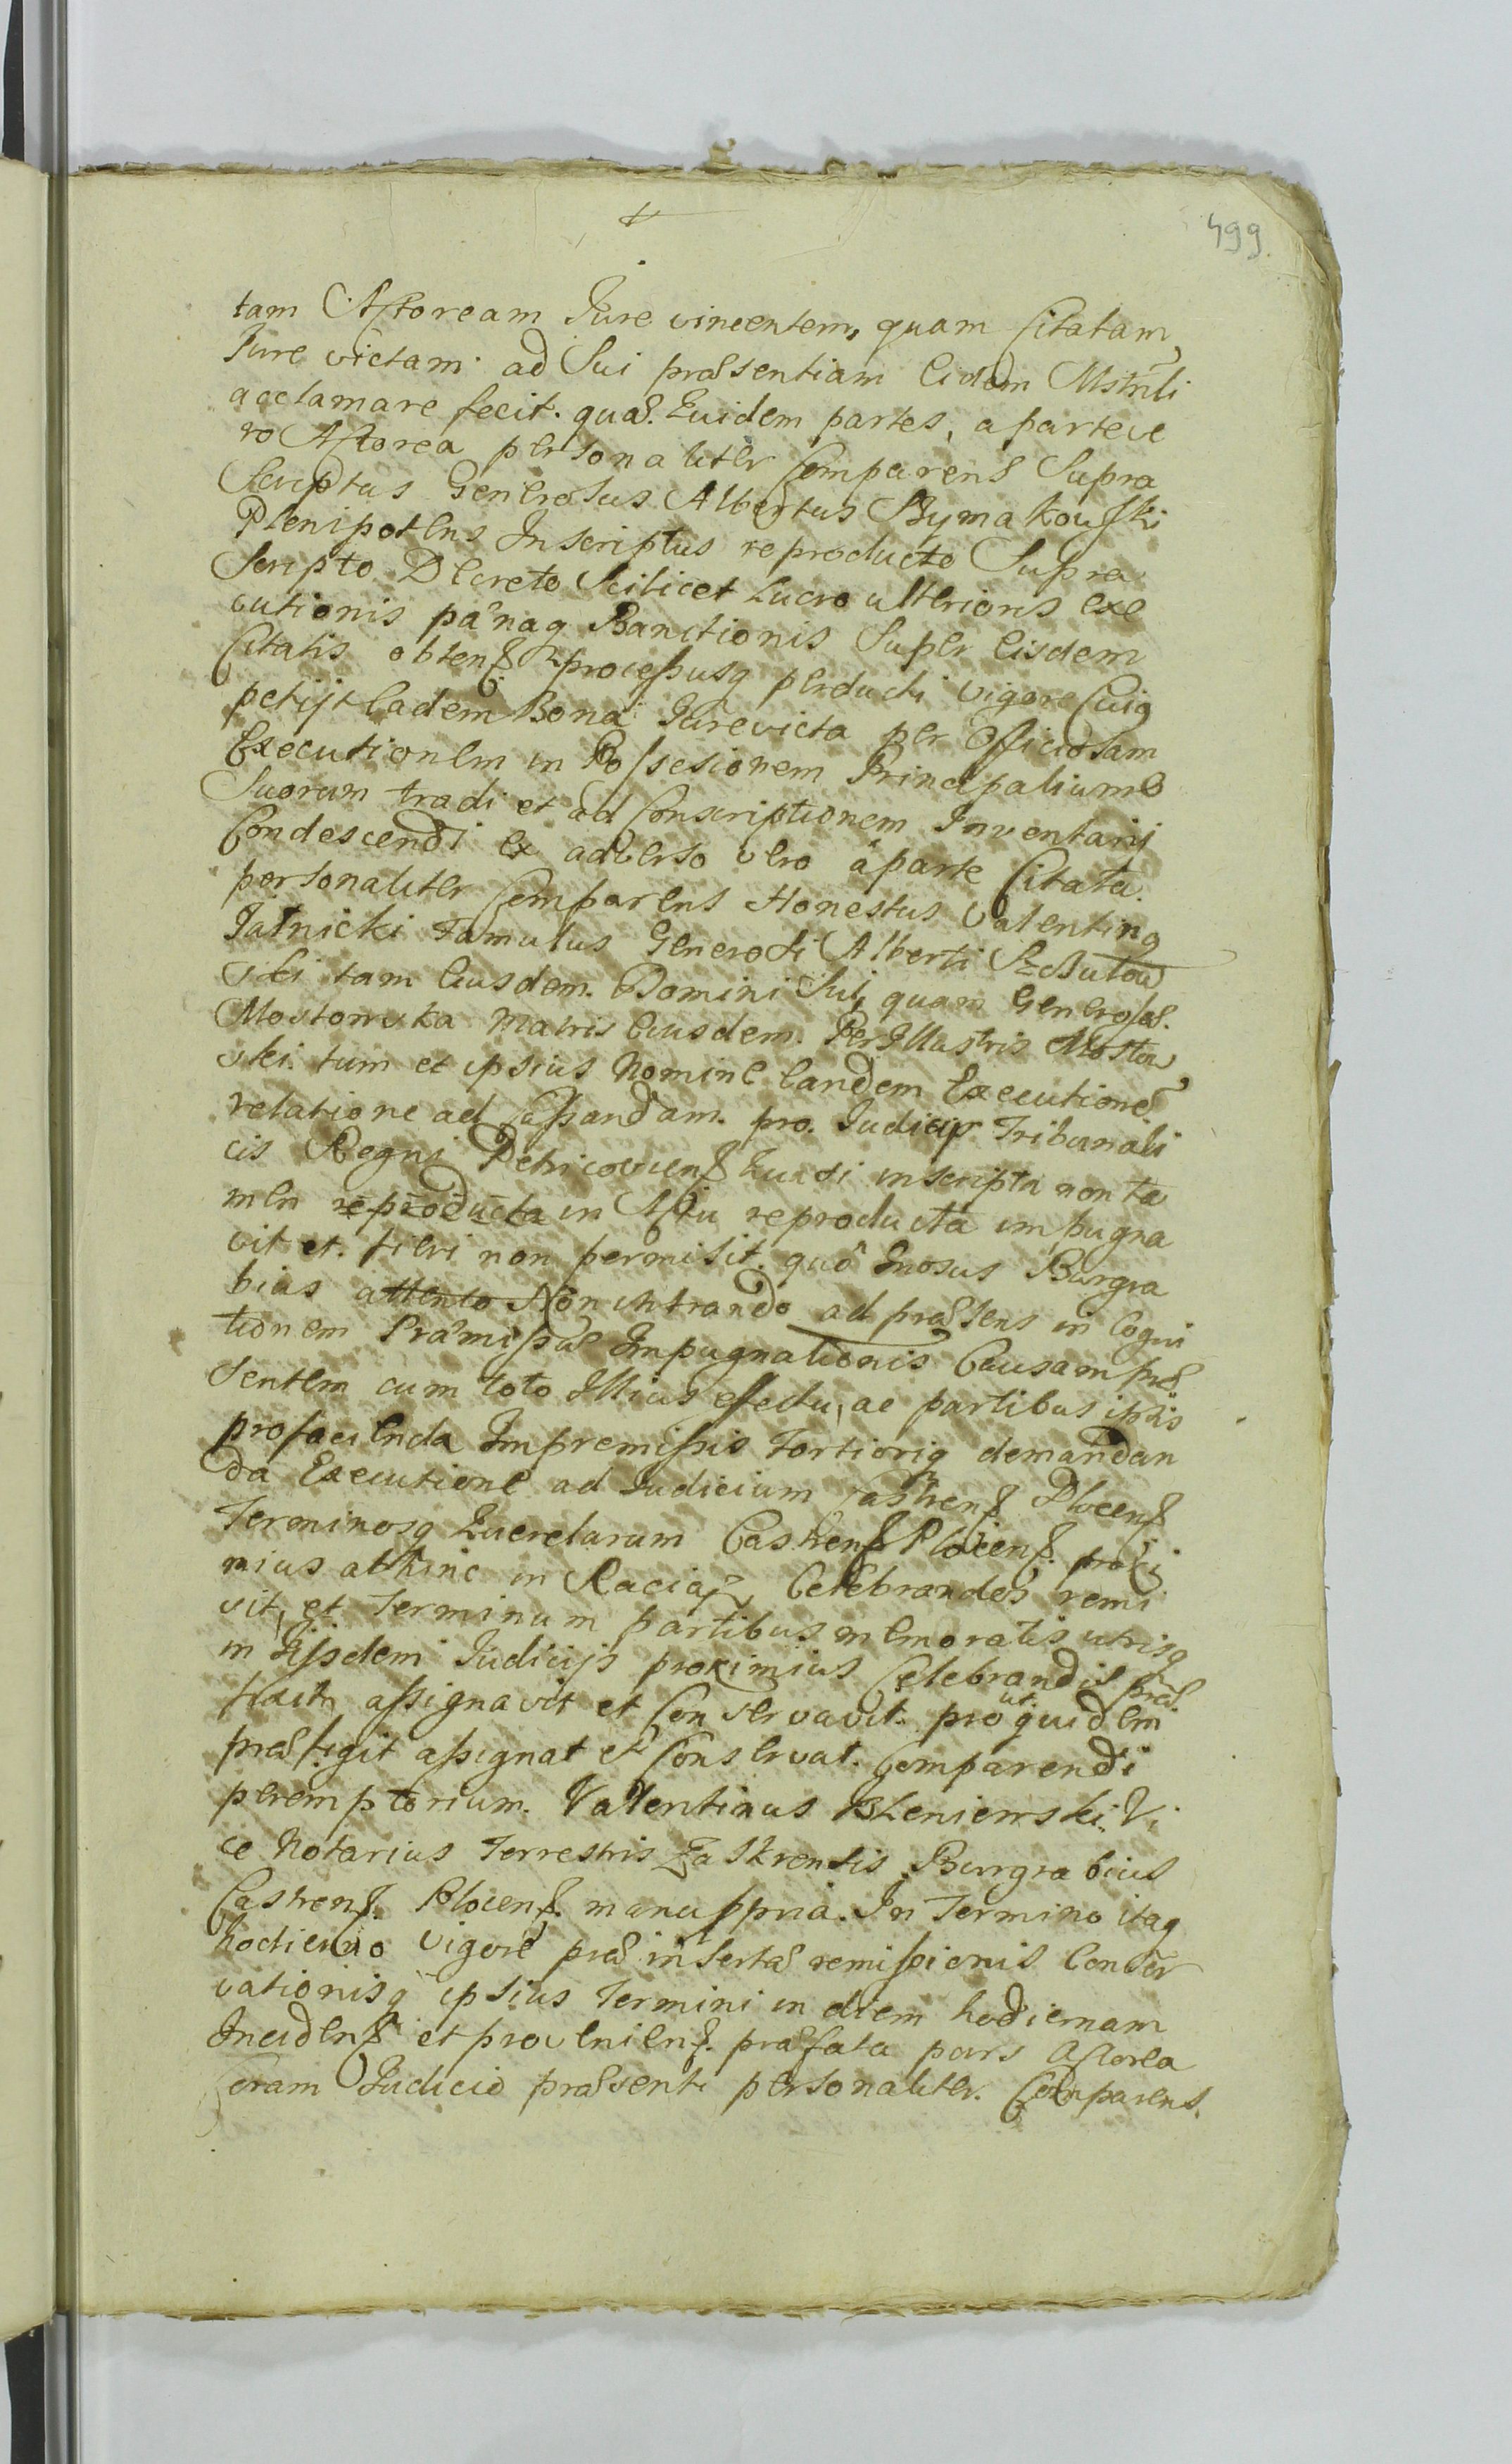 499.
tam Actoream Jure vincentem, quam Citatam,
Jure victam ad Sui præsentiam eidem Mstrili
acclamare fecit. quæ. quidem partes, a parte ve
ro Actorea personaliter Comparens Supra
Scriptus Generosus Albertus Rymakowski
Plenipotens Inscriptus reproducto Supra
Scripto Decreto Scilicet Lucro ulterioris exe
cutionis pænaq Banitionis Super eisdem
Citatis obtenꝭ processusq perducti vigore Cuiq
petijt eadem Bona Jurevicta per Officiosam
Executionem in Possesionem Principalium
Suorum tradi et ad Conscriptionem Inventarii
Condescendi ex adverso vero a parte Citata.
personaliter Comparens Honestus Valentinq
Jatnicki Famulus Generosi Alberti
ski tam eiusdem. Domini Sui, quam Generosæ.
Mostowska Matris eiusdem. Perillustris Mostow
ski. tum et ipsius Nomine eandem Executione
relatione ad Cassandam. pro. Judicijs Tribunali
cis Regni Petricovienꝭ quasi inscripta non ta
men reproducta in Actu reproducta impugna
vit et. fieri non permisit. quo Gnosus Burgra
bius attento Non intrando ad præsens in Cogni
tionem Præmissæ Impugnationis Causam præ
sentem cum toto Illius effectu, ac partibus ipsis
pro facienda Impremissis Fortioriq demandan
da Executione ad Judicium Castrenꝭ Plocenꝭ
Terminosq Querelarum Castrenꝭ Plocenꝭ. proxi
mius abhinc in Raciąż Celebrandos remi
sit, et Terminum partibus memoratis utrisq
in Eijsdem Judicijs proximius Celebrandis præ
fixit assignavit et Conservavit. prout quidem
præfigit assignat et Conservat. Comparendi
peremptorium. Valentinus Bleniewski. Vi
ce Notarius Terrestris Zaskrensis Burgrabius
Castrenꝭ. Plocenꝭ. manu ppria. In Termino itaq
hodierno Vigore præinsertæ remissionis Conser
vationisq ipsius Termini in diem hodiernam
Incidenꝭ et provenienꝭ. præfata pars Actorea
Coram Judicio præsenti personaliter. Comparens.